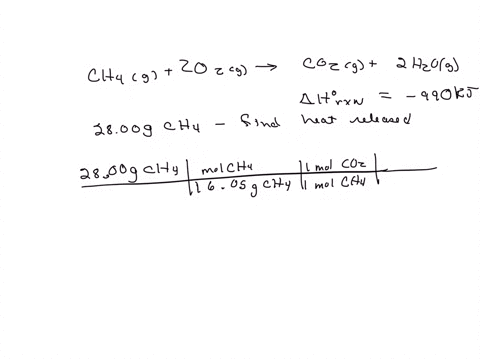 CH4(g) + 2O2(g) → CO2(g) + 2H2O(g)
ΔH°rxn = -990kJ
28.00g CH4 - find heat released
28.00g CH4 | mol CH4 | 1 mol CO2 |
| 16.05g CH4 | 1 mol CH4 |